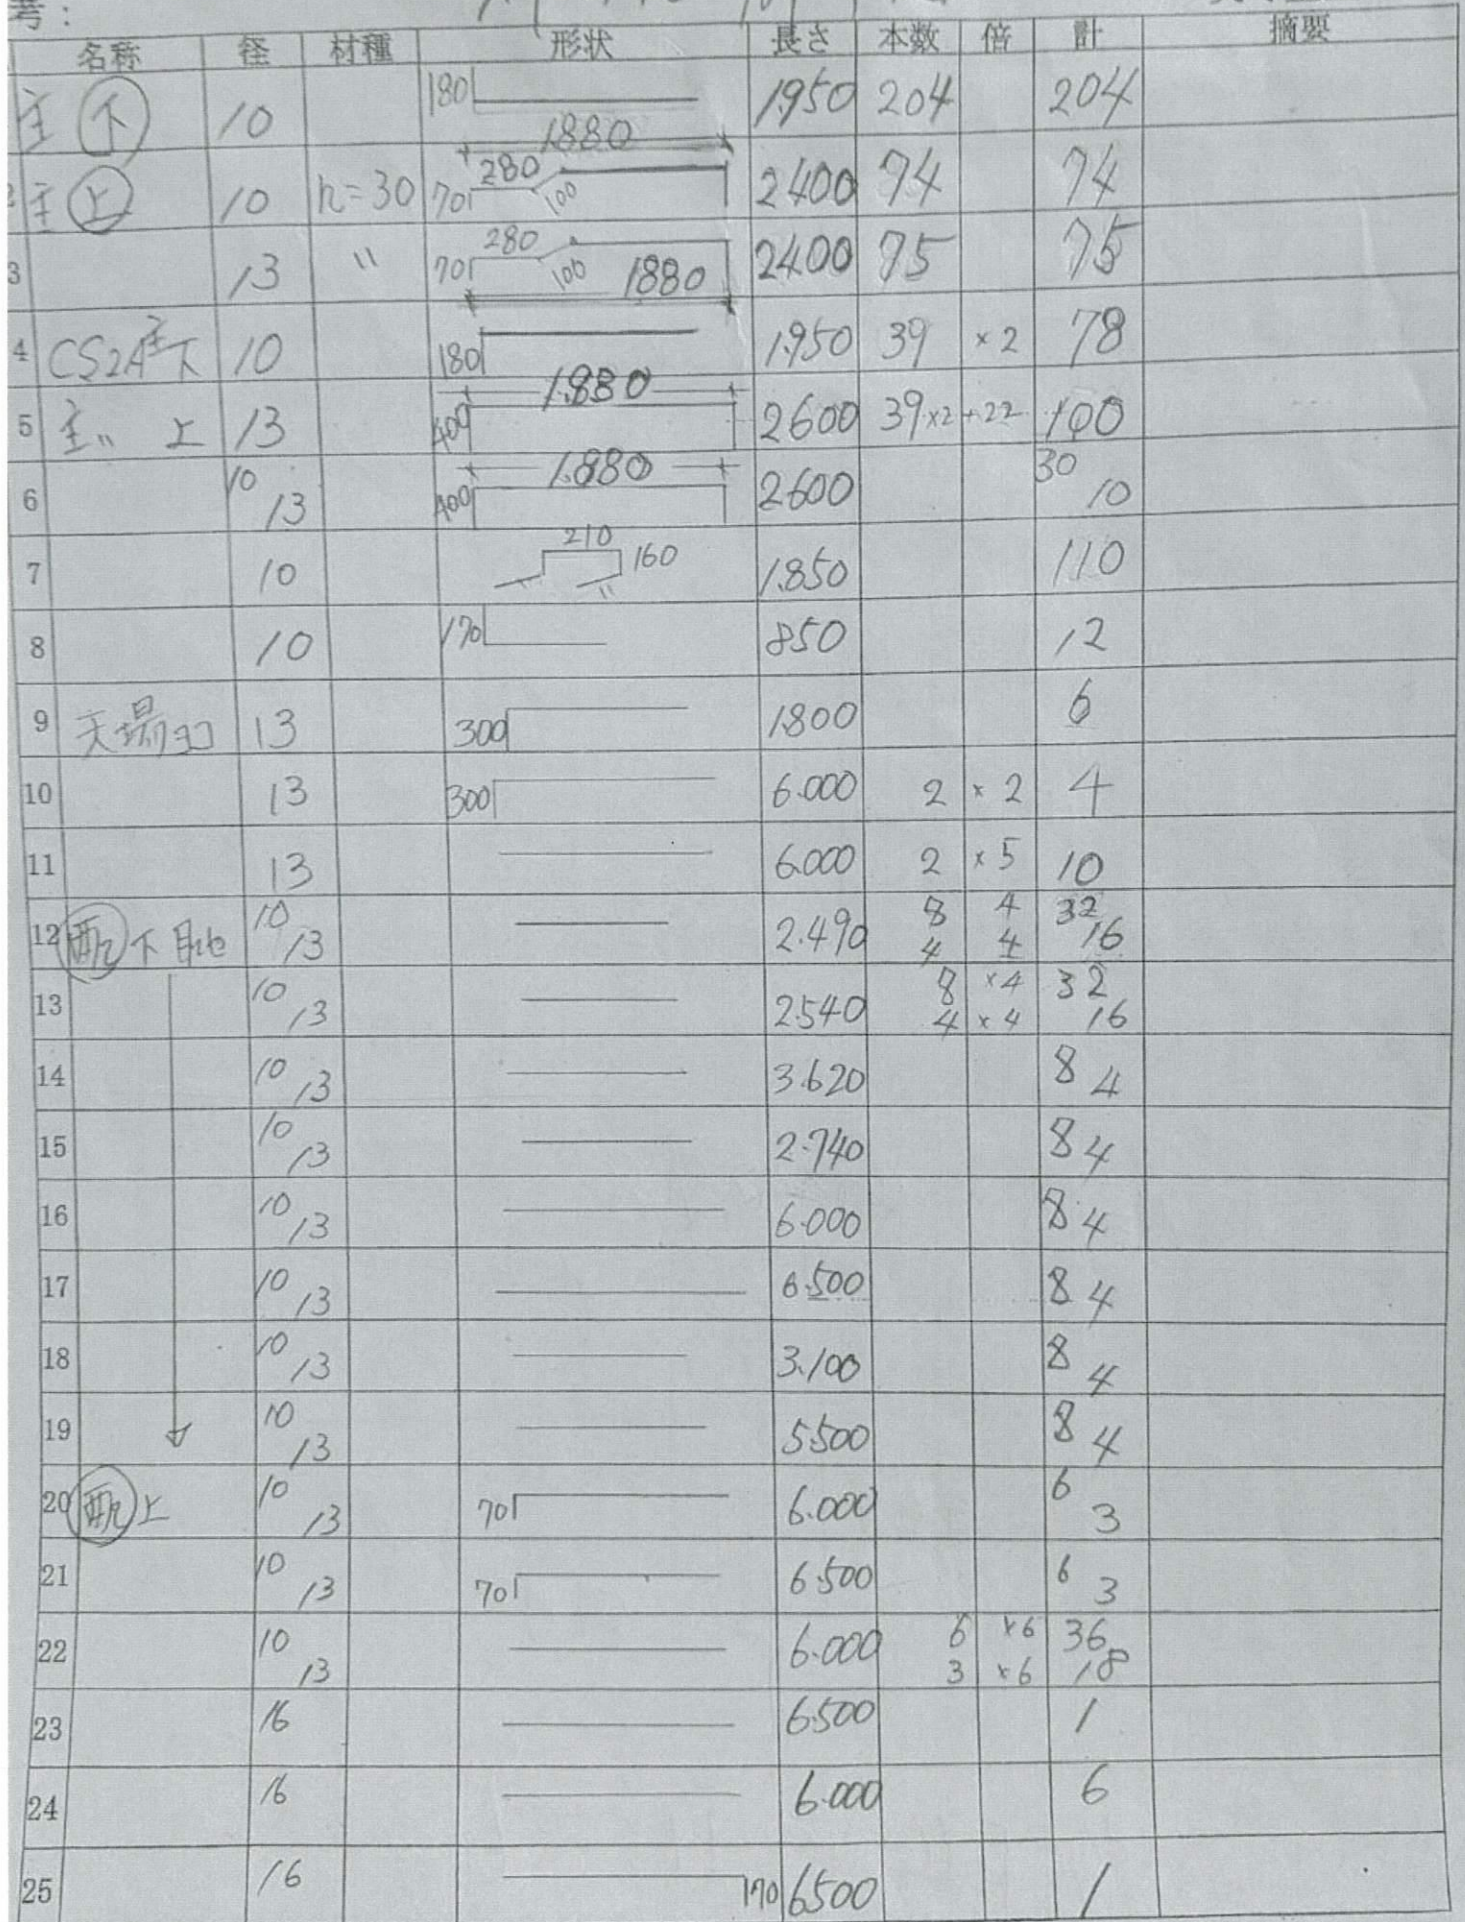 考:
名称 径 材種 形状 長さ 本数 倍 計 摘要
主 下 10 180 1.950 204 204
1880
主 上 10 h=30 70 280 100 2400 74 74
3 13 〃 70 280 100 1880 2400 75 75
4 CS2A主下 10 180 1.950 39 ×2 78
1.880
5 主〃 上 13 400 2600 39×2 +22 100
1.880
6 10 13 400 2600 30 10
7 10 210 160 〃 〃 1.850 110
8 10 170 850 12
9 天場ヨコ 13 300 1.800 6
10 13 300 6.000 2 ×2 4
11 13 6.000 2 ×5 10
12 配 下 目地 10 13 2.490 8 4 32
4 4 16
13 10 13 2.540 8 ×4 32
4 ×4 16
14 10 13 3.620 8 4
15 10 13 2.740 8 4
16 10 13 6.000 8 4
17 10 13 6.500 8 4
18 10 13 3.100 8 4
19 10 13 5.500 8 4
20 配 上 10 13 70 6.000 6 3
21 10 13 70 6.500 6 3
22 10 13 6.000 6 ×6 36
3 ×6 18
23 16 6.500 1
24 16 6.000 6
25 16 170 6.500 1